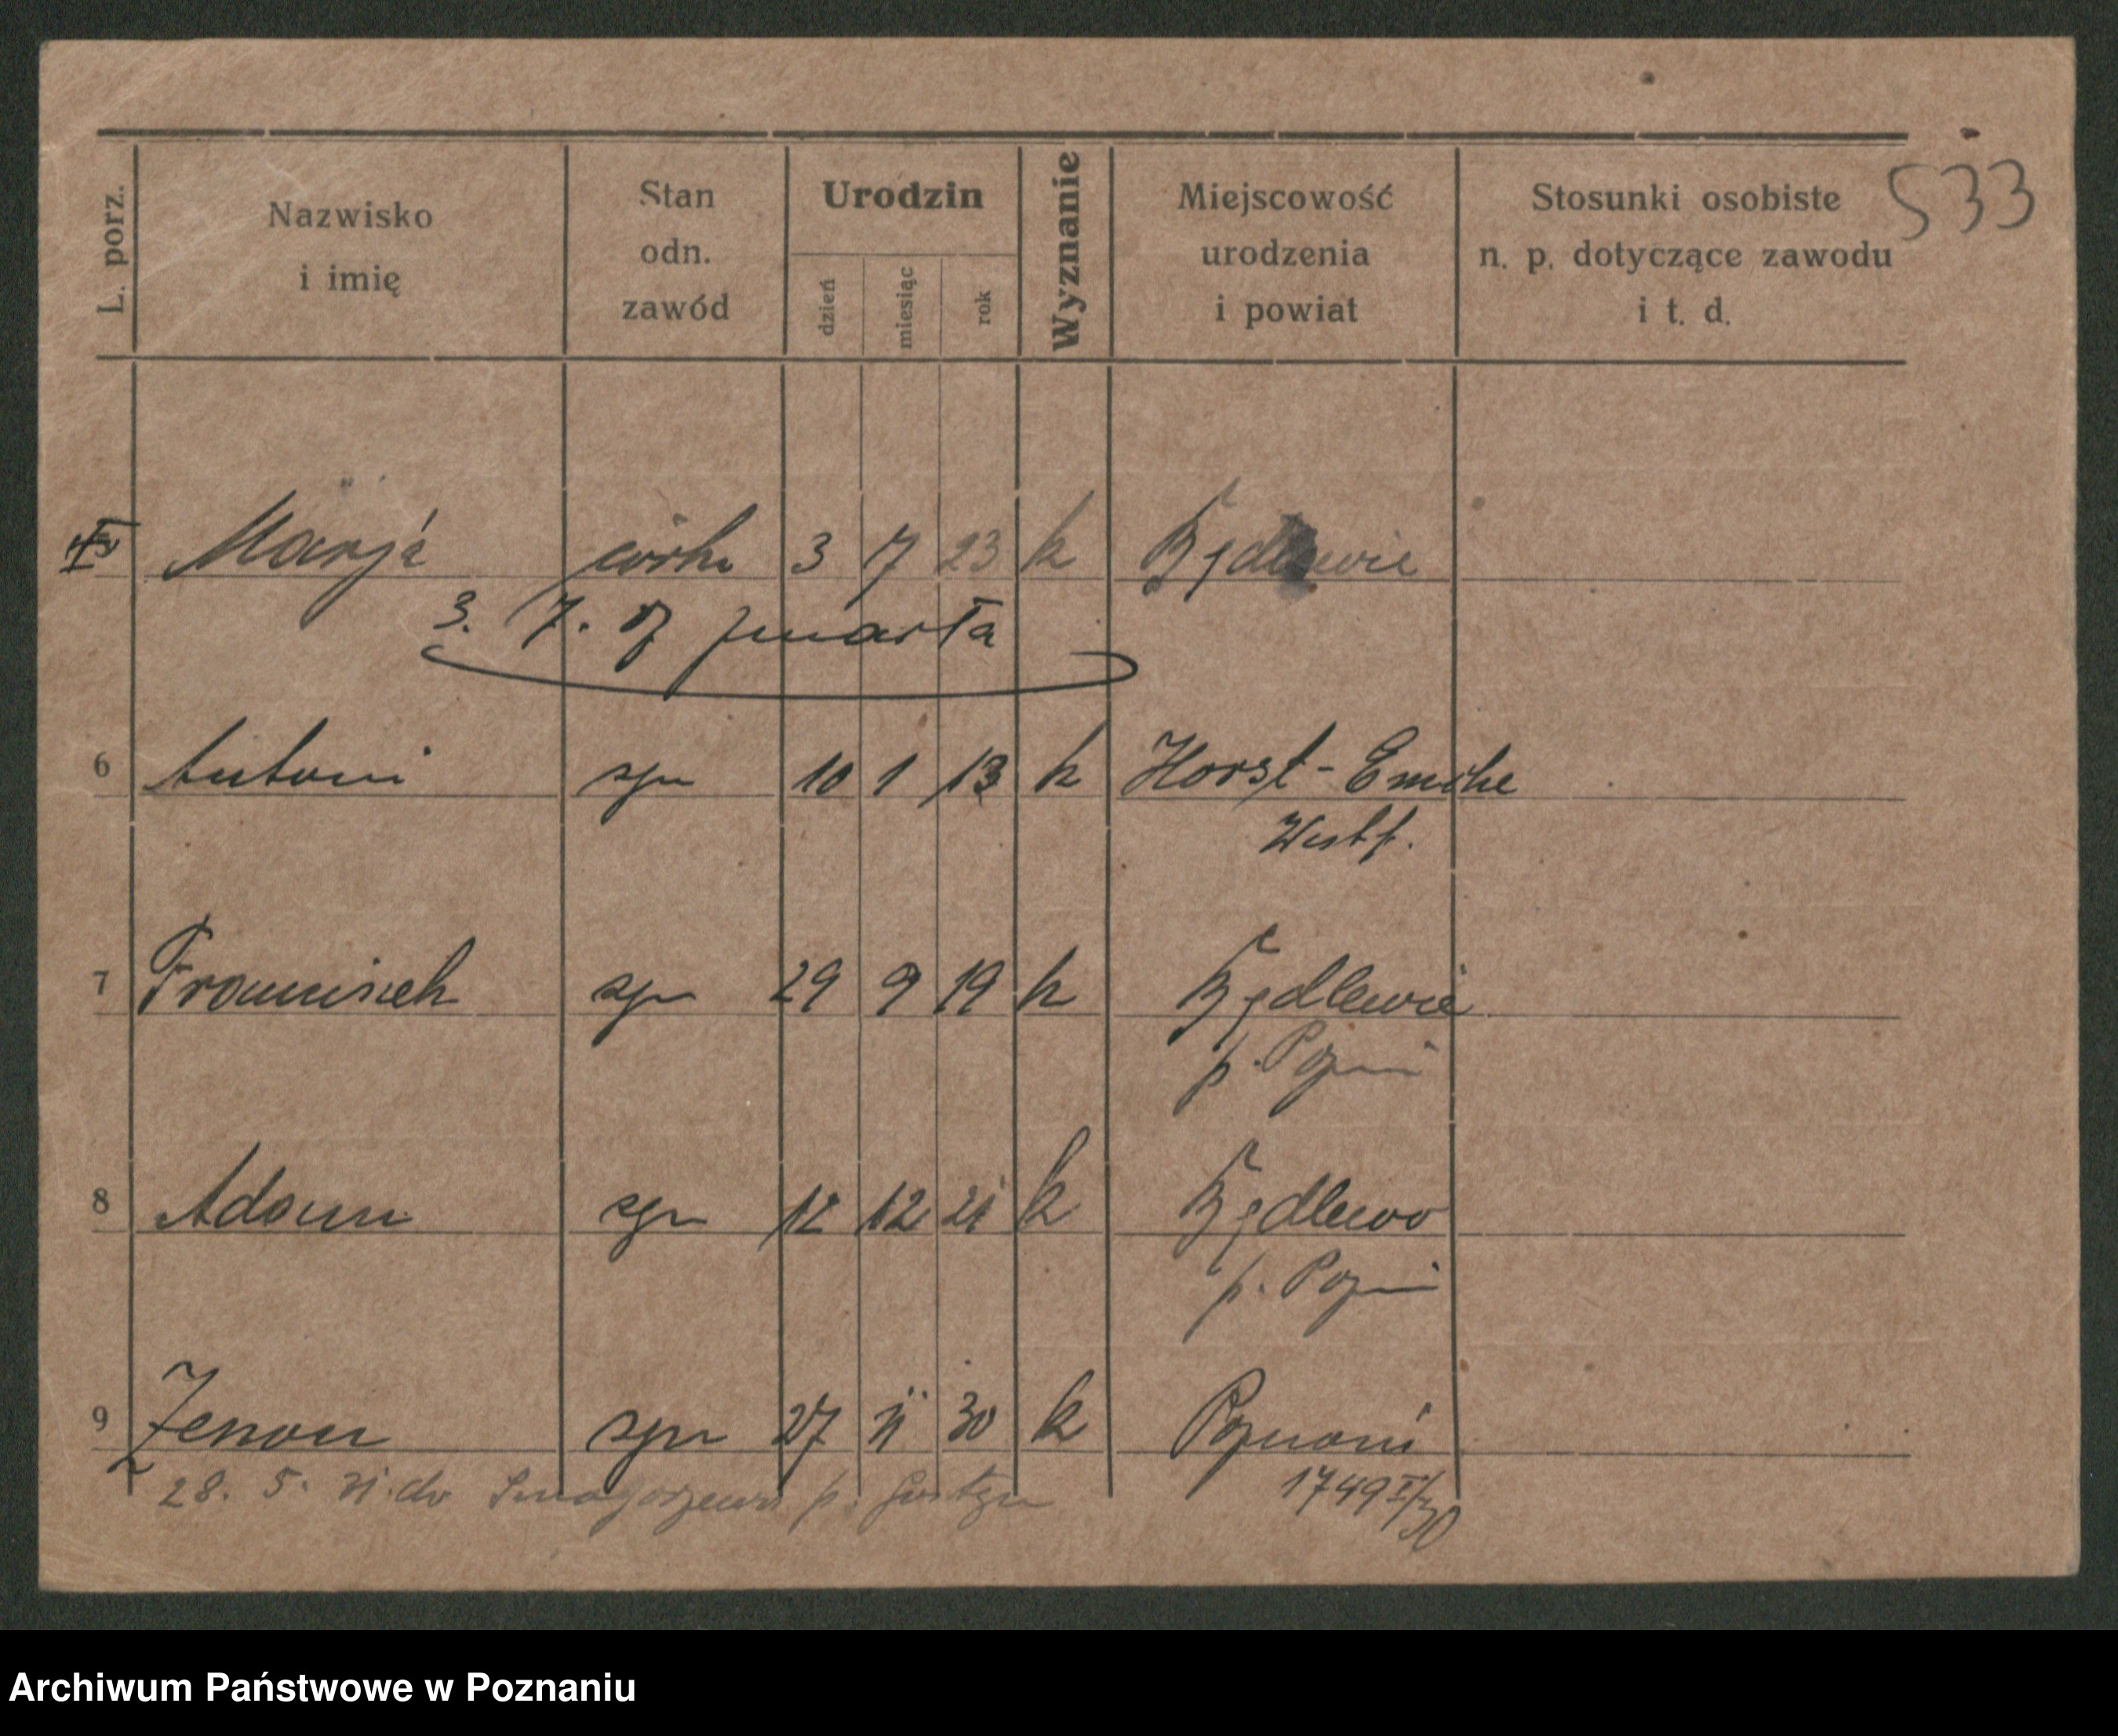 533
L. porz. Nazwisko i imię Stan odn. zawód Urodzin dzień miesiąc rok Wyznanie Miejscowość urodzenia i powiat Stosunki osobiste n. p. dotyczące zawodu i t. d.
Marja córka 3 7 23 k
3. 7. zmarła
6 Antoni syn 10 1 13 k Horst-Emsche
Westf.
7 Franciszek syn 29 9 19 k Będlewie
p. Pozn
8 Adam syn 12 12 21 k Będlewo
p. Pozn
9 Zenon syn 27 30 k Poznań
28. 5. 31. do p. Gostyn 1749
Archiwum Państwowe w Poznaniu